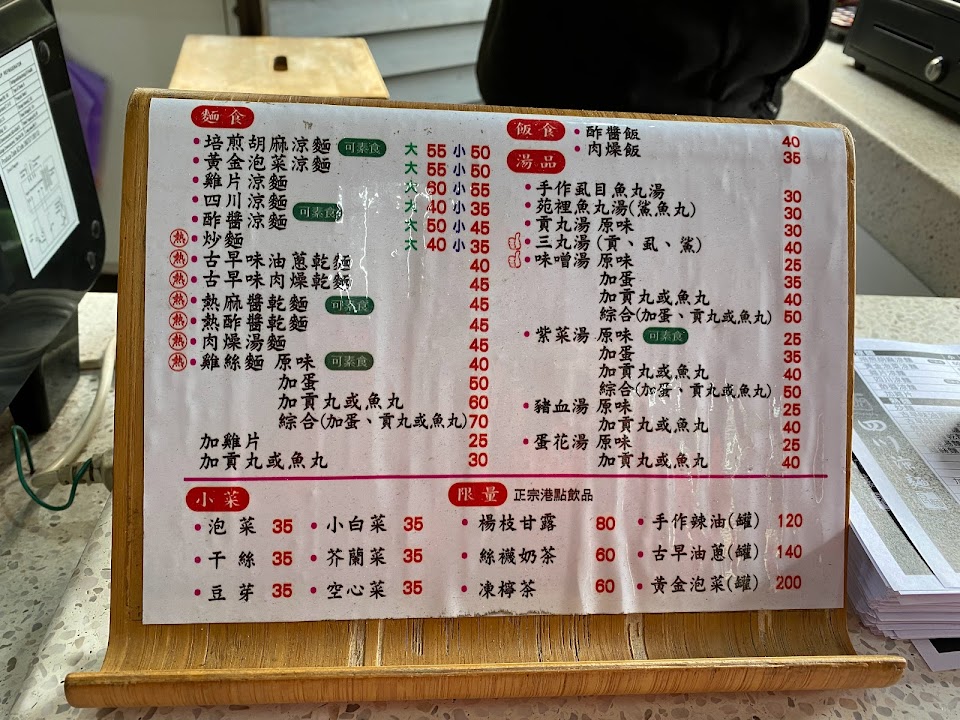 麵食
• 培煎胡麻涼麵 可素食 大 55 小 50
• 黃金泡菜涼麵 大 55 小 50
• 雞片涼麵 大 60 小 55
• 四川涼麵 可素食 大 40 小 35
• 酢醬涼麵 大 50 小 45
熱 • 炒麵 大 40 小 35
熱 • 古早味油蔥乾麵 40
熱 • 古早味肉燥乾麵 45
熱 • 熱麻醬乾麵 可素食 45
熱 • 熱酢醬乾麵 45
熱 • 肉燥湯麵 45
熱 • 雞絲麵 原味 可素食 40
加蛋 50
加貢丸或魚丸 60
綜合(加蛋、貢丸或魚丸) 70
加雞片 25
加貢丸或魚丸 30
飯食
• 酢醬飯 40
• 肉燥飯 35
湯品
• 手作虱目魚丸湯 30
• 苑裡魚丸湯(鯊魚丸) 30
• 貢丸湯 原味 30
• 三丸湯(貢、虱、鯊) 40
• 味噌湯 原味 25
加蛋 35
加貢丸或魚丸 40
綜合(加蛋、貢丸或魚丸) 50
• 紫菜湯 原味 可素食 25
加蛋 35
加貢丸或魚丸 40
綜合(加蛋、貢丸或魚丸) 50
• 豬血湯 原味 25
加貢丸或魚丸 40
• 蛋花湯 原味 25
加貢丸或魚丸 40
小菜
• 泡菜 35 • 小白菜 35
• 干絲 35 • 芥蘭菜 35
• 豆芽 35 • 空心菜 35
限量 正宗港點飲品
• 楊枝甘露 80 • 手作辣油(罐) 120
• 絲襪奶茶 60 • 古早油蔥(罐) 140
• 凍檸茶 60 • 黃金泡菜(罐) 200